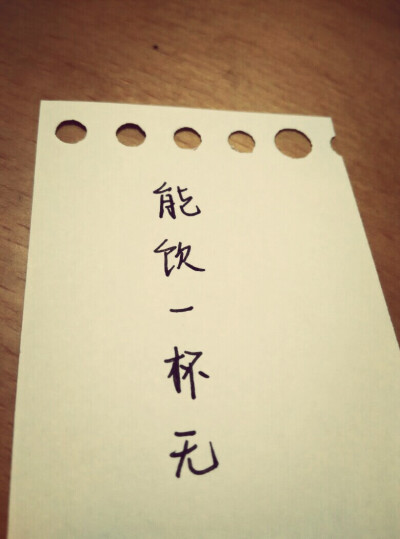 能饮一杯无